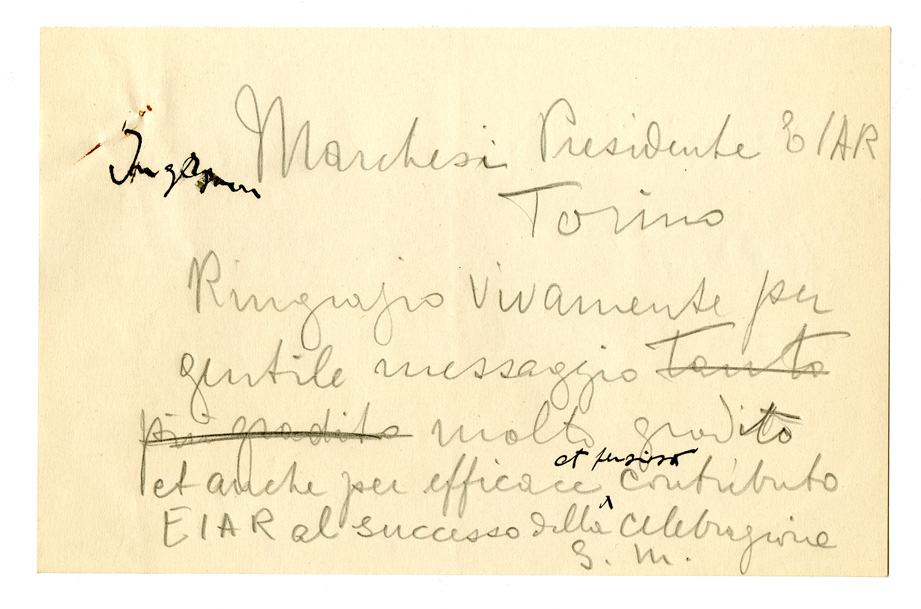 Ing Marchesi Presidente EIAR
Torino
Ringrazio vivamente per
gentile messaggio tanto
più gradito molto gradito
et anche per efficace et contributo
EIAR al successo della celebrazione
G. M.